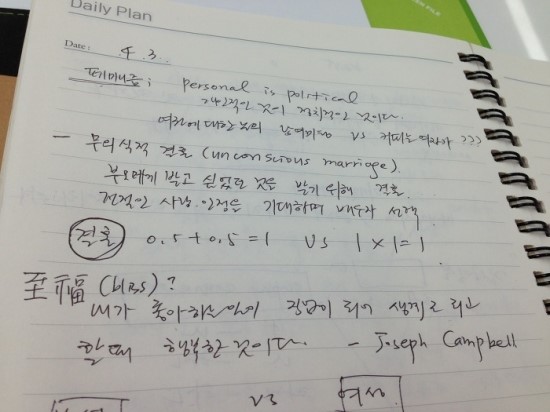 Daily Plan
Date: 4. 3.
페미니즘; personal is political
개인적인 것이 정치적인 것이다.
여자에 대한 남의 vs 여자가 ???
— 무의식적 결혼 (unconscious marriage).
부모에게 받고 싶었던 것을 받기 위해 결혼.
전적인 사랑. 인정을 기대하며 배우자 선택
결혼 0.5+0.5=1 vs 1×1=1
至福 (bliss)?
내가 좋아하는 일이 직업이 되어 생계로 되고
할 때 행복한 것이다. - Joseph Campbell
vs 여성